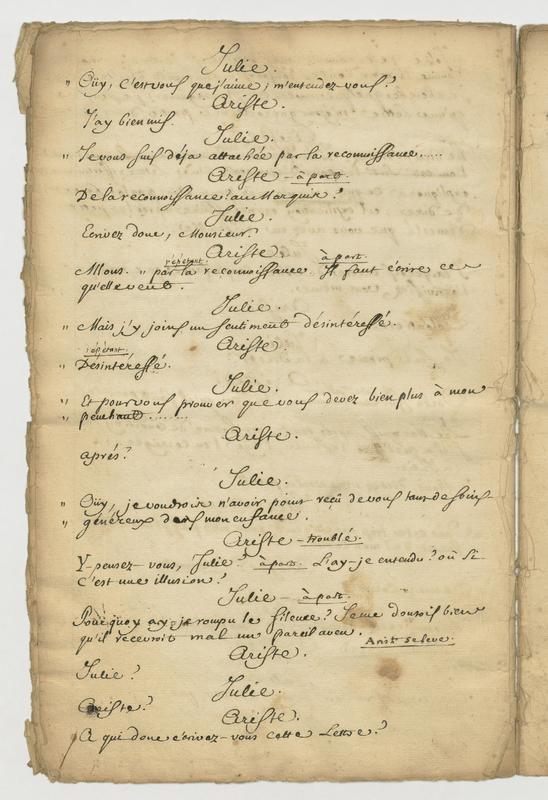 Julie.
" Oüy, c'est vous que j'aime, m'entendez-vous?
Ariste.
J'ay bien mis.
Julie.
" Je vous suis déja attachée par la reconnoissance.....
Ariste - à part.
De la reconnoissance! au Marquis?
Julie.
Ecrivez donc, Monsieur.
Ariste.
répétant. à part.
Allons. " par la reconnoissance. Il faut écrire ce
qu'elle veut.
Julie.
" Mais j'y joins un sentiment désintéressé.
Ariste.
répétant.
" Désintéressé.
Julie.
" Et pour vous prouver que vous devez bien plus à mon
" penchant........
Ariste.
aprés?
Julie.
" Oüy, je voudrois n'avoir point reçû de vous tant de soins
" généreux dans mon enfance.
Ariste - troublé.
Y-pensez-vous, Julie? à part. L'ay-je entendu? où si
c'est une illusion?
Julie - à part.
Pourquoy ay-je rompu le silence? Je me doutois bien
qu'il recevroit mal un pareil aveu.
Arist. se leve.
Ariste.
Julie?
Julie.
Ariste?
Ariste.
A qui donc écrivez-vous cette Lettre?